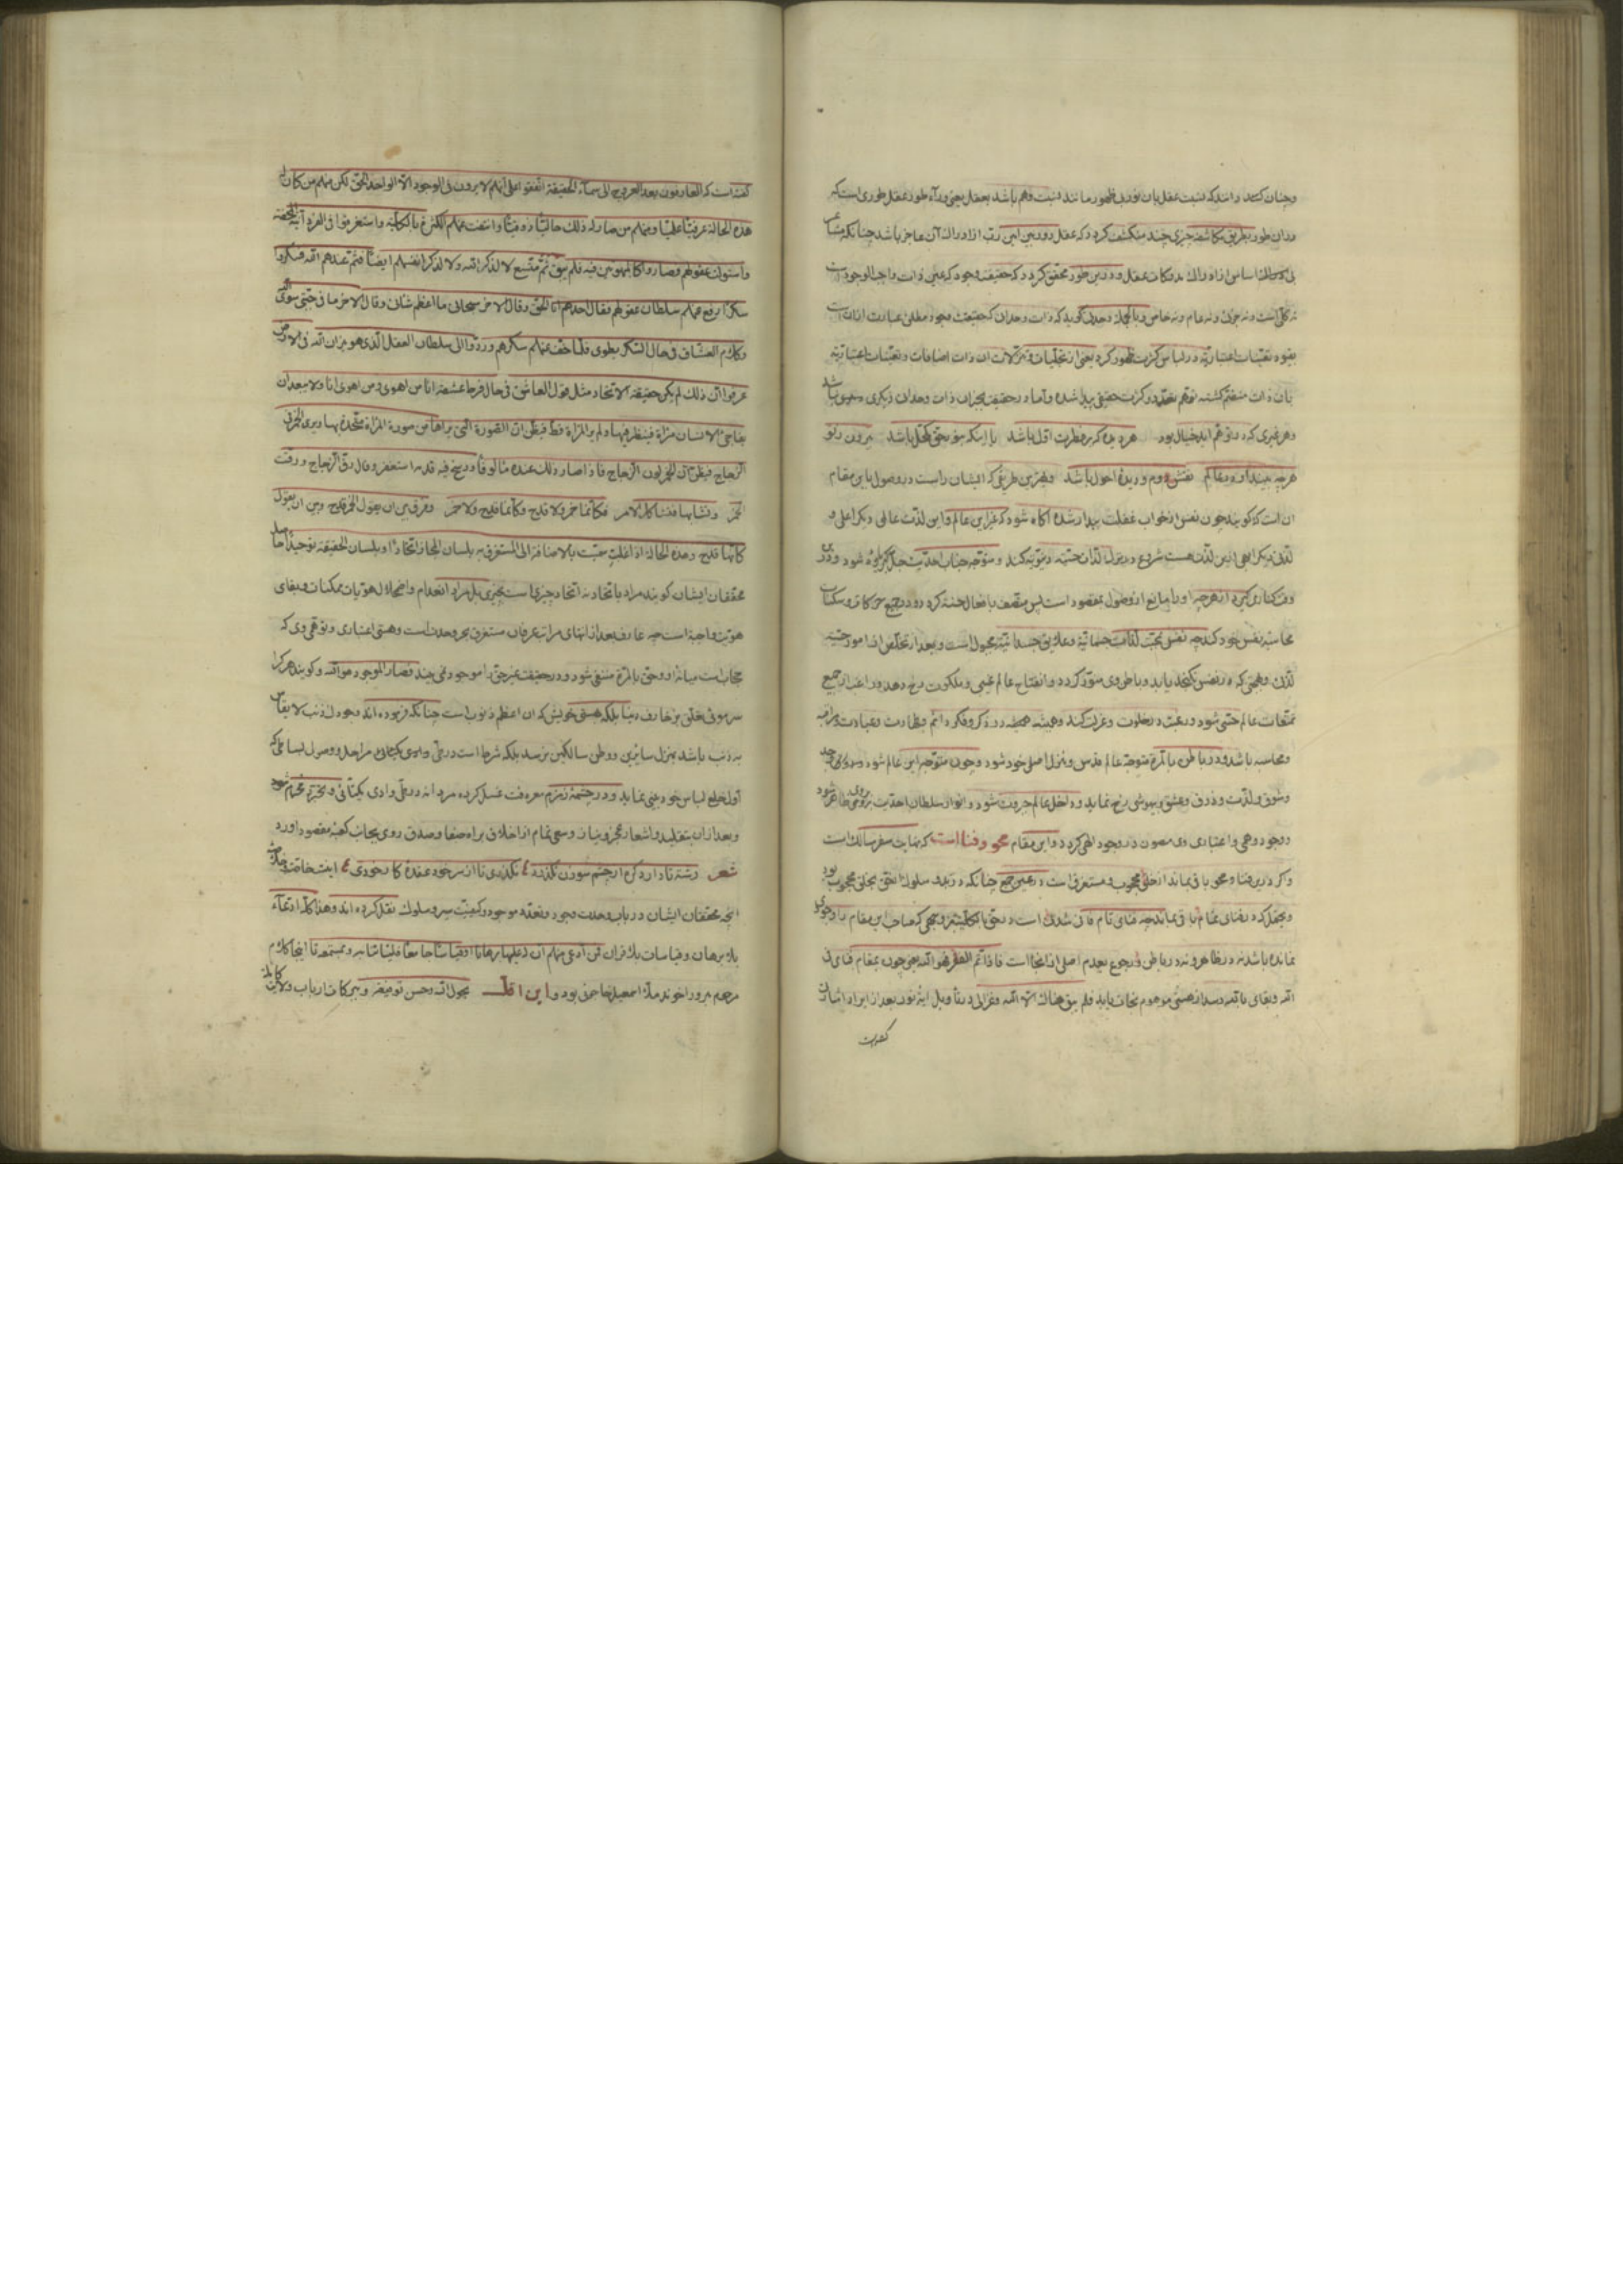 وچنان گفته‌اند که نسبت عقل بان نور در ظهور مانند نسبت وهم باشد بعقل یعنی ورآء طور عقل طوری است که
دران طور بطریق مکاشفه چیزی چند منکشف گردد که عقل دوربین ازادراک آن عاجز باشد چنانکه
از ادراک مدرکات عقل و درین طور محقق گردد که حقیقت وجود که عین ذات واجب الوجود است
نه کلی است و نه جزئی و نه عام و نه خاص گوید که ذات وحدان که حقیقت وجود مطلق عبارت ازان است
بقیود تعینات اعتباریه در لباس کثرت ظهور کرد یعنی از تجلیات و تنزلات ان ذات اضافات و تعینات اعتباریه
بان ذات منضم گشته توهم تعدد و کثرت حقیقی پیدا شده و آما در حقیقت بجز ان ذات وحدان دیگری نباشد
وهر غیری که در توهم اید خیال بود هر دیده که بر فطرت اول باشد یا انکه بنور حق مکحل باشد بیرون ز تو
هرچه بیند اندر عالم نقش دوم و دیدهٔ احول باشد وبهترین طریقی که ایشان راست در وصول باین مقام
ان است که گویند چون نفس از خواب غفلت بیدار شده آگاه شود که غیر این عالم و این لذت عالمی دیگر اعلی و
لذتی دیگر ابهی ازین لذت هست شروع در ترک لذات حسیه و توبه کند و متوجه جناب احدیت جل ذکره شود و
کناری گیرد از هرچه اورا مانع از وصول بمقصود است پس متصف بافعال حسنه گردد و در جمیع حرکات و سکنات
محاسبه نفس خود کند چه نفس بمحبت لذات جسمانیه و علایق جسدانیه مجبول است و بعد از تخلص از امور حسیه
لذت وهمی که در نفس یابد و باطن وی منور گردد و انفتاح عالم غیبی و ملکوت رخ دهد و راغب از جمیع
تمتعات عالم حسی شود و رغبت در خلوت و عزلت کند و همیشه در ذکر و فکر دائم و طهارت و عبادت و مراقبه
ومحاسبه باشد و در باطن بالمره متوجه عالم قدس و منزل اصلی خود شود و چون متوجه این عالم شود وجد
وشوق و لذت و ذوق و عشق و بیهوشی رخ نماید و داخل عالم جبروت شود و انوار سلطان احدیت بروی ظاهر شود
و وجود وهمی و اعتباری وی در وجود الهی گردد و این مقام محو و فنا است که نهایت سفر سالک است
و اگر درین فنا و محو باقی بماند از خلق محجوب و مستغرق است در عین جمع چنانکه در بدو سلوک از حق بخلق محجوب بود
در فنای تمام باقی بماند چه فنای تام فانی شدن است در حق بالکلیه بوجهی که صاحب این مقام را وجودی
نمانده باشد نه در ظاهر و نه در باطن و رجوع بعدم اصلی از اینجا است فاذا تم الفقر فهو الله یعنی چون بمقام فنای فی
الله و بقای بالله رسد از هستی موهوم نجات یابد فلم یبق هناک الا الله وغزالی در تاویل ایهٔ نور بعد از ایراد
گفته است
گفته است که العارفون بعد العروج الی سمآء الحقیقة اتفقوا علی انهم لا یرون فی الوجود الا الواحد الحق لکن منهم من کان له
هذه الحالة عرفیا علمیا و منهم من صار له ذلک حالیا ذوقیا وانتفت عنهم الکثرة بالکلیة واستغرقوا فی الفردانیة المحضة
واستولت عقولهم فصاروا کالمبهوتین فیه فلم یبق ثم متسع لا لذکر الله ولا لذکر انفسهم ایضا فلم عندهم الا الله فسکروا
سکرا رفع عنهم سلطان عقولهم فقال احدهم انا الحق وقال الاخر سبحانی ما اعظم شانی وقال الاخر ما فی جبتی سوی الله
وکلام العشاق فی حال السکر یطوی فلما خف عنهم سکرهم وردوا الی سلطان العقل الذی هو میزان الله فی الارض
عرفوا ان ذلک لم یکن حقیقة الاتحاد مثل قول العاشق فی حال فرط عشقه انا من اهوی ومن اهوی انا ولا یبعد ان
یفاجئ الانسان مراة فینظر فیها ولم یر المراة قط فیظن ان الصورة التی یراها من صورة المراة متحدة بها ویری الخمر فی
الزجاج فیظن ان الخمر لون الزجاج فاذا صار ذلک عنده مالوفا ورسخ فیه قدمه استغفر وقال رق الزجاج ورقت
الخمر وتشابها فتشاکل الامر فکانما خمر ولا قدح وکانما قدح ولا خمر وفرق بین ان یقول الخمر قدح وبین ان یقول
کانها قدح وهذه الحالة اذا غلبت سمیت بالاضافة الی المستغرق به بلسان المجاز اتحادا وبلسان الحقیقة توحیدا
محققان ایشان گویند مراد باتحاد نه اتحاد چیزی است بچیزی بل مراد انعدام و اضمحلال هویات ممکنات و بقای
هویت واجبه است چه عارف بعد از انتهای مراتب عرفان مستغرق بحر وحدت است و هستی اعتباری و توهمی وی که
حجاب است میانهٔ او و حق بالمره منتفی شود و در حقیقت غیر حق را موجود نمی‌بیند فصار الموجود هو الله و گویند هرکرا
سر موئی تعلق بزخارف دنیا بلکه بهستی خویش که ان اعظم ذنوب است چنانکه فرموده‌اند وجودک ذنب لا یقاس
به ذنب باشد بمنزل سایرین و وطن سالکین نرسد بلکه شرط است در طی مراحل و وصول
اول خلع لباس خود بینی نماید و در چشمهٔ زمزم معرفت غسل کرده مردانه در طی وادی یکتائی و تجرد محرم شود
وبعد ازان بتقلید و اشعار عجز و نیاز و سعی تمام از اخلاق براه صفا و صدق روی بجانب کعبهٔ مقصود اورد
شعر رشته تا دارد گره از چشم سوزن نگذرد ٤ نگذری تا از سر خود عقده کار خودی ٤ اینست خلاصه
انچه محققان ایشان در باب وحدت وجود و تعدد موجود و کیفیت سیر و سلوک نقل کرده‌اند وهذا کله ادعآء
بلا برهان وقیاسات بلا فرقان فمن ادعی منهم ان علیها برهانا او قیاسا جامعا فلیاتنا به ونستمعه تا اینجا کلام
مرحوم مبرور اخوند ملا اسمعیل خاجوئی بود و این اقل بحول الله و حسن توفیقه و ببرکات ارباب ولایت